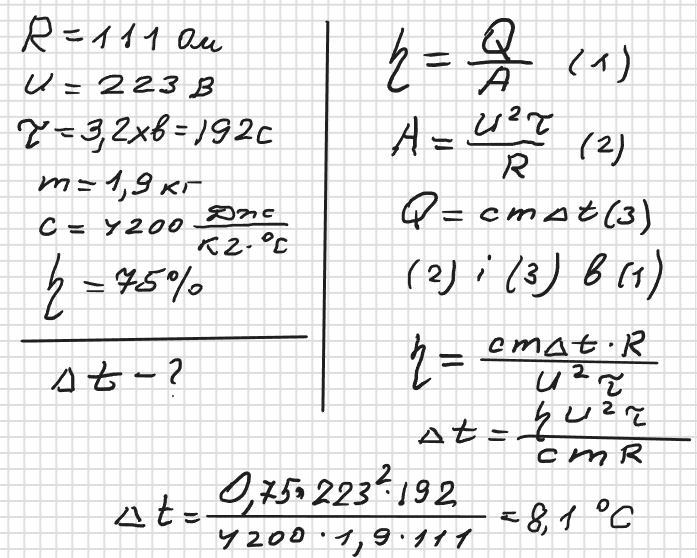 R = 111 Ом
U = 223 В
τ = 3,2 хв = 192 с
m = 1,9 кг
c = 4200 Дж/кг·°С
η = 75%
Δt - ?
η = Q/A (1)
A = U²τ/R (2)
Q = cmΔt (3)
(2) і (3) в (1)
η = cmΔt·R/U²τ
Δt = ηU²τ/cmR
Δt = 0,75·223²·192/4200·1,9·111 = 8,1 °С